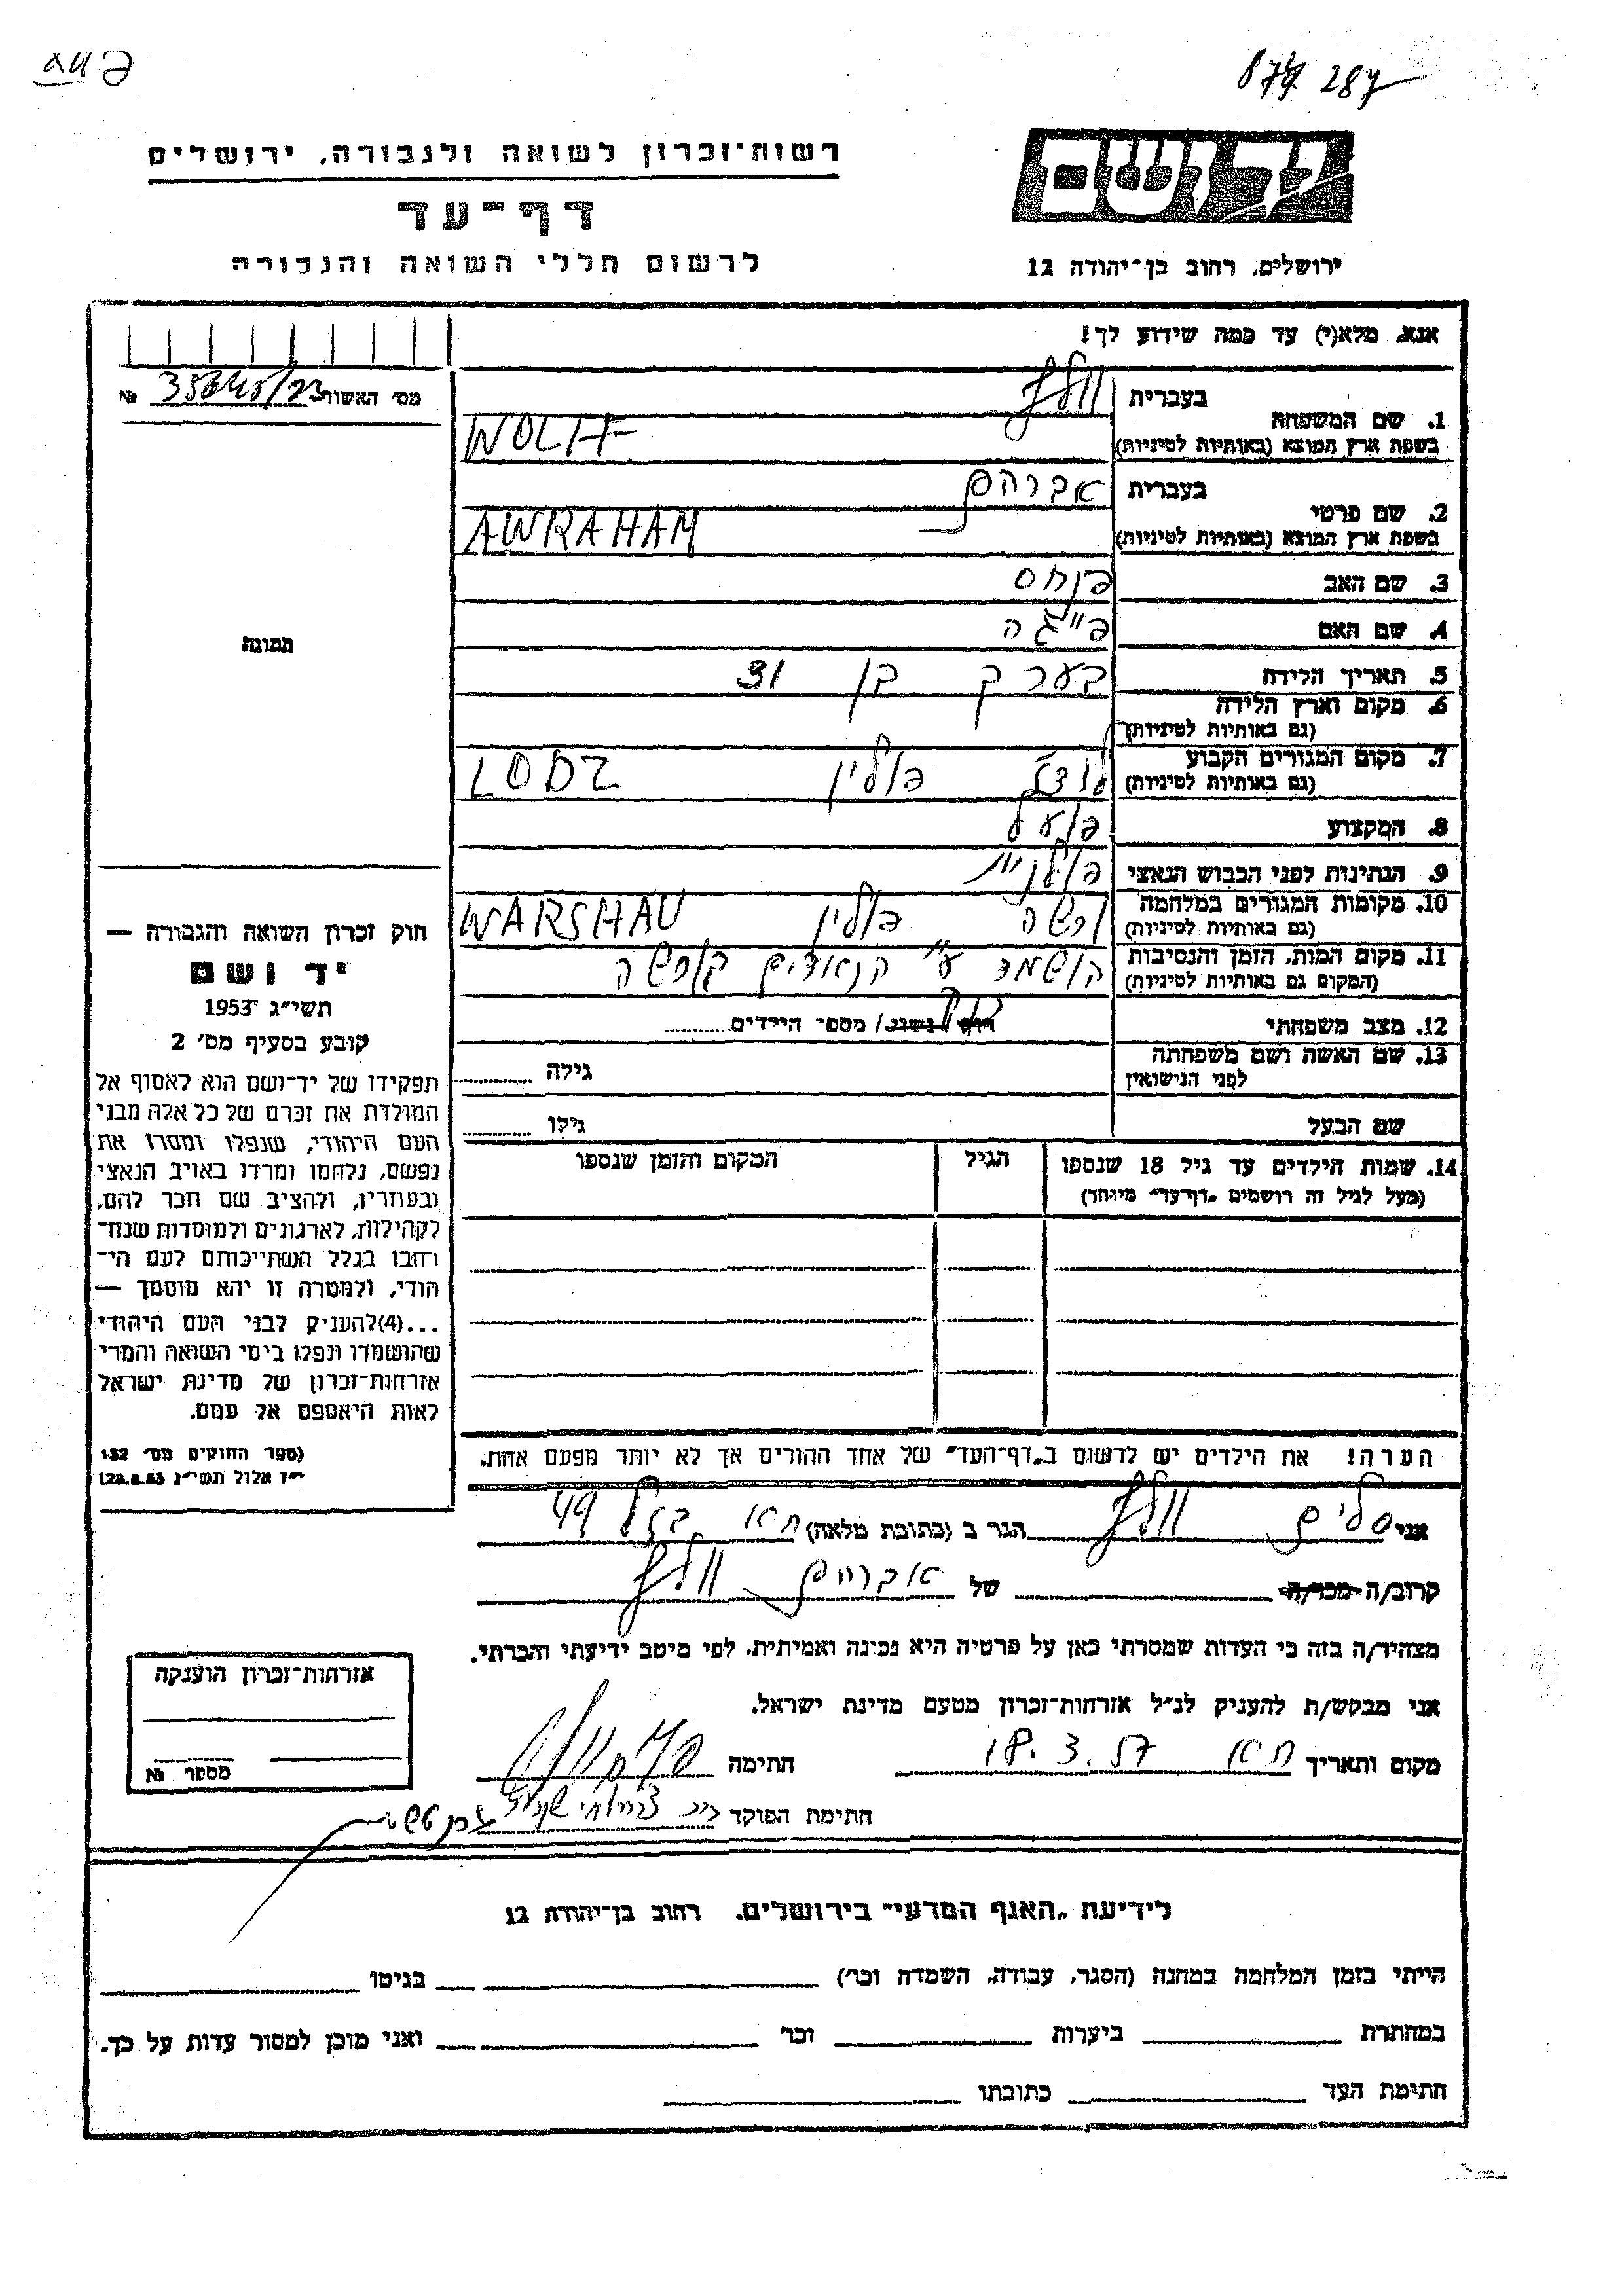 287
ידושם
ירושלים, רחוב בן־יהודה 12
רשות־זכרון לשואה ולגבורה, ירושלים
דף־עד
לרשום חללי השואה והגבורה
אנא, מלא(י) עד כמה שידוע לך!
מס׳ האשור № /23
1. שם המשפחה
בעברית וולף
בשפת ארץ המוצא (באותיות לטיניות) WOLFF
2. שם פרטי
בעברית אברהם
בשפת ארץ המוצא (באותיות לטיניות) AWRAHAM
3. שם האב פנחס
4. שם האם פייגה
5. תאריך הלידה בערך בן 31
6. מקום וארץ הלידה
(גם באותיות לטיניות)
7. מקום המגורים הקבוע לודז׳ פולין LODZ
(גם באותיות לטיניות)
8. המקצוע פועל
9. הנתינות לפני הכבוש הנאצי פולנית
10. מקומות המגורים במלחמה ורשה פולין WARSHAU
(גם באותיות לטיניות)
11. מקום המות, הזמן והנסיבות הושמד ע״י הנאצים בורשה
(המקום גם באותיות לטיניות)
12. מצב משפחתי רווק/נשוי/ מספר הילדים
13. שם האשה ושם משפחתה
לפני הנישואין
גילה
שם הבעל
גילו
14. שמות הילדים עד גיל 18 שנספו
(מעל לגיל זה רושמים „דף־עד״ מיוחד)
הגיל
המקום והזמן שנספו
הערה! את הילדים יש לרשום ב„דף־העד״ של אחד ההורים אך לא יותר מפעם אחת.
תמונה
חוק זכרון השואה והגבורה —
יד ושם
תשי״ג 1953
קובע בסעיף מס׳ 2
תפקידו של יד־ושם הוא לאסוף אל
המולדת את זכרם של כל אלה מבני
העם היהודי, שנפלו ומסרו את
נפשם, נלחמו ומרדו באויב הנאצי
ובעוזריו, ולהציב שם וזכר להם,
לקהילות, לארגונים ולמוסדות שנח־
רבו בגלל השתייכותם לעם הי־
הודי, ולמטרה זו יהא מוסמך —
...(4)להעניק לבני העם היהודי
שהושמדו ונפלו בימי השואה והמרי
אזרחות־זכרון של מדינת ישראל
לאות היאספם אל עמם.
(ספר החוקים מס׳ 132
י״ז אלול תשי״ג 28.8.53)
אני וולף הגר ב (כתובת מלאה) ת״א 49
קרוב/ה מכר/ה של אברהם וולף
מצהיר/ה בזה כי העדות שמסרתי כאן על פרטיה היא נכונה ואמיתית, לפי מיטב ידיעתי והכרתי.
אני מבקש/ת להעניק לנ״ל אזרחות־זכרון מטעם מדינת ישראל.
מקום ותאריך ת״א 18.3.57 חתימה
חתימת הפוקד
אזרחות־זכרון הוענקה
מספר №
לידיעת „האגף המדעי״ בירושלים, רחוב בן־יהודה 12
הייתי בזמן המלחמה במחנה (הסגר, עבודה, השמדה וכו׳) בגיטו
במחתרת ביערות וכו׳ ואני מוכן למסור עדות על כך.
חתימת העד כתובתו